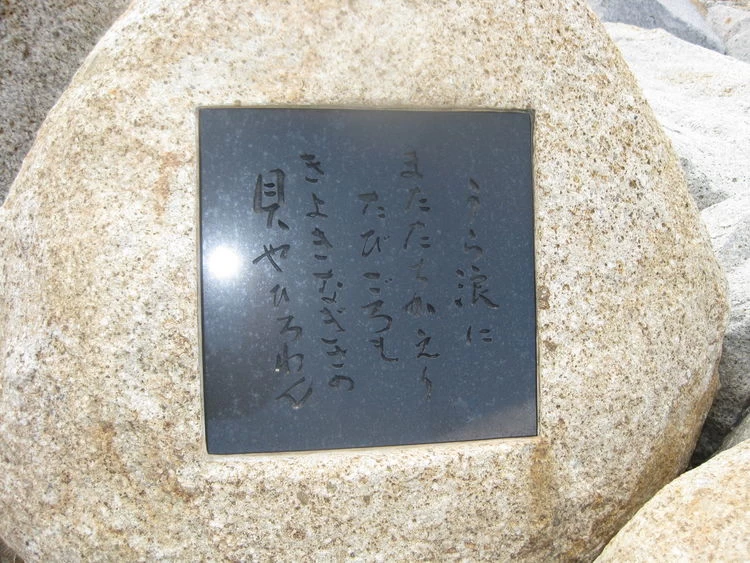 うら浪に
またたちかえり
たびごろも
きよきなぎさの
貝やひろわん